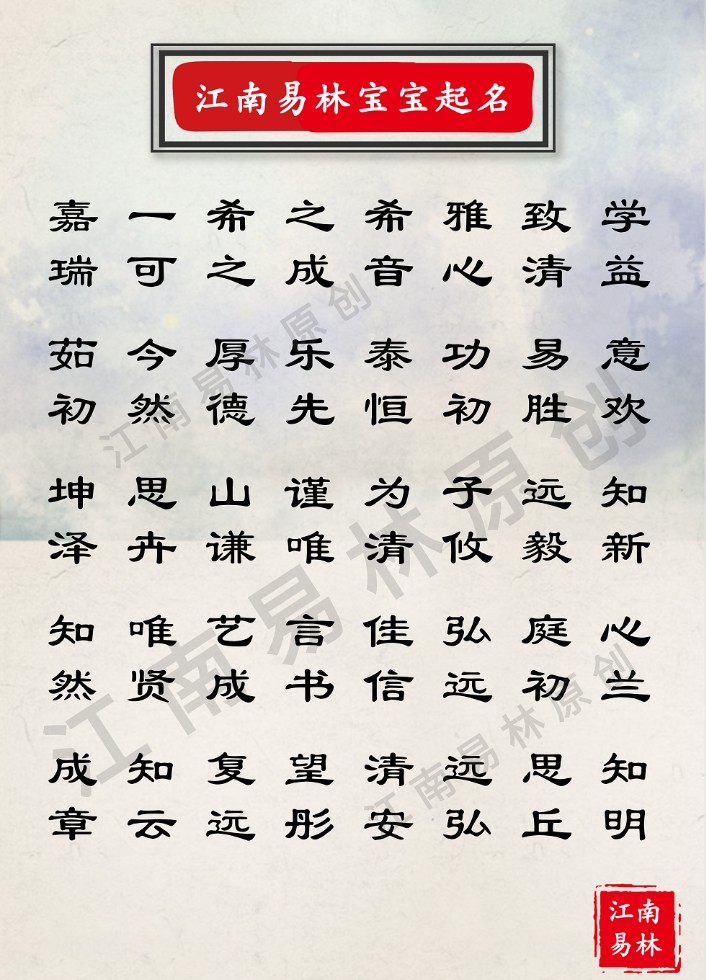 江南易林宝宝起名
嘉 一 希 之 希 雅 致 学
瑞 可 之 成 音 心 清 益
茹 今 厚 乐 泰 功 易 意
初 然 德 先 恒 初 胜 欢
坤 思 山 谨 为 子 远 知
泽 卉 谦 唯 清 攸 毅 新
知 唯 艺 言 佳 弘 庭 心
然 贤 成 书 信 远 初 兰
成 知 复 望 清 远 思 知
章 云 远 彤 安 弘 丘 明
江南易林原创
江南易林原创
江南易林原创
江南
易林